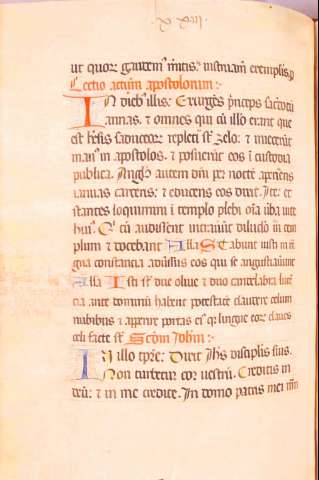 ut quor̄ gaudem᷒ m̄itis: instruam̄ exemplis. p
Lectio actuum apostolorum:·
In dieb᷒ illis: Exurgēs p̄nceps sac̄dotū
annas. & omnes qui cū illo erant que
est h̄esis saduceor̄ repleti st̄ zelo: & iniecerūt
man᷒ in apostolos. & posuerūt eos ī custodia
publica. Angl̄s autem dn̄i per noctē aperiens
ianuas carceris: & educens eos dixit. Ite: et
stantes loquimini ī templo plebi om̄ia ūba uite
hui᷒. Qī cū audissent intrauūt diluclo in tem
plum & docebant Alla Stabunt iusti in m̄
gna constancia aduersus eos qui se angustiauerūt
Alla Isti st̄ due oliue & duo candelabra luc̄e
cia ante dominū habent potestatē claudere celum
nubibus & aperire portas ei᷒ qr̄ lingue eor̄ claues
celi facte st̄ Scdm Iohm̄:·
In illo tp̄re: Dixit Ih̄s disciplis suis.
Non turbetur cor uestrū. Creditis in
deū: & in me credite. In domo patris mei